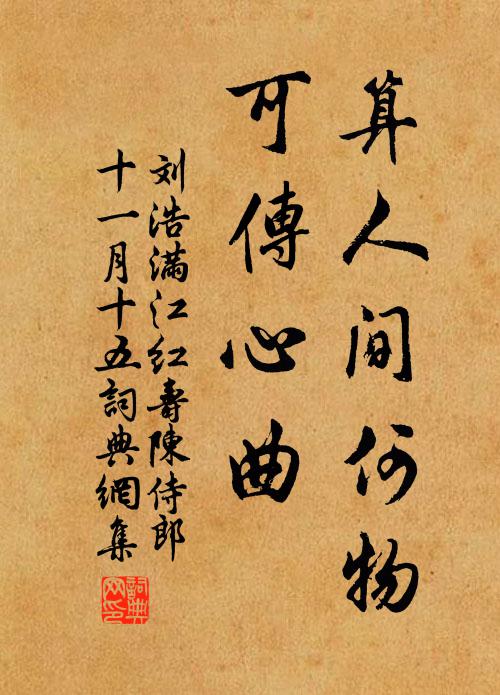 算人間何物
可傳心曲
刘浩满江红壽陳侍郎
十一月十五詞典網集
詞典网印